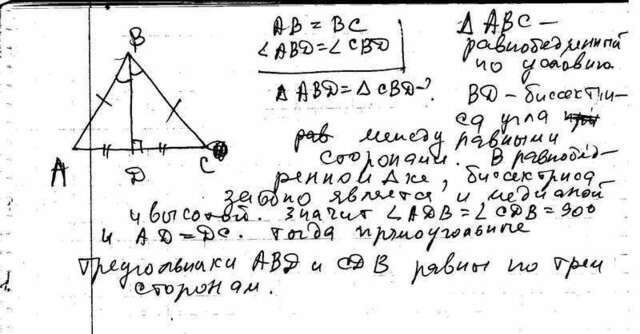 AB = BC
∠ABD = ∠CBD
△ABD = △CBD-?
△ABC –
равнобедренный
по условию.
BD – биссектри-
са угла
между равными
сторонами. В равнобед-
ренном △ке, биссектриса
заодно является и медианой
и высотой. Значит ∠ADB = ∠CDB = 90°
и AD = DC. Тогда прямоугольные
треугольники ABD и CDB равны по трем
сторонам.
B
A
D
C